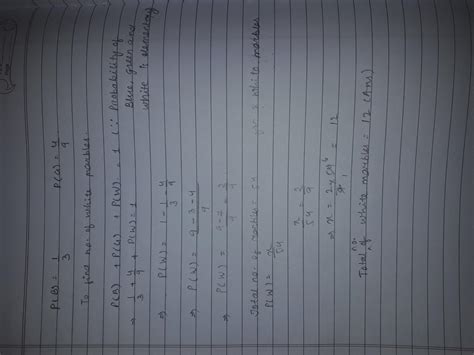 P(B) = 1/3 P(G) = 4/9
To find no. of white marbles
P(B) + P(G) + P(W) = 1 (∵ Probability of Blue, green and white is elementary
⇒ 1/3 + 4/9 + P(W) = 1
⇒ P(W) = 1 - 1/3 - 4/9
⇒ P(W) = 9-3-4/9
⇒ P(W) = 9-7/9 = 2/9
Total no. of marbles = 54 white marbles
P(W) = x/54
x/54 = 2/9
⇒ x = 2×54 6/9 1 = 12
Total no. of white marbles = 12 (Ans)